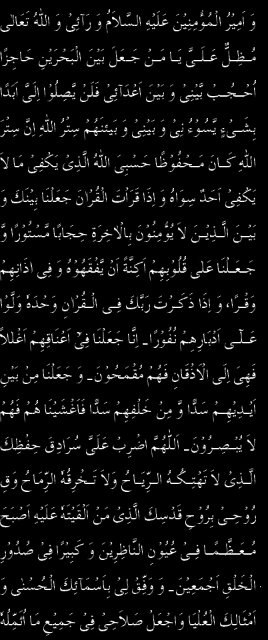 وَ اَمِيْرُ الْمُؤْمِنِيْنَ عَلَيْهِ السَّلَامُ وَ رَائِيْ وَ اللّٰهُ تَعَالٰى
مُظِلٌّ عَلَىَّ يَا مَنْ جَعَلَ بَيْنَ الْبَحْرَيْنِ حَاجِزًا
اُحْجُبْ بَيْنِيْ وَ بَيْنَ اَعْدَآئِيْ فَلَنْ يَّصِلُوْا اِلَىَّ اَبَدًا
بِشَيْءٍ يَّسُوْءُ نِيْ وَ بَيْنِيْ وَ بَيْنَهُمْ سِتْرُ اللّٰهِ اِنَّ سِتْرَ
اللّٰهِ كَانَ مَحْفُوْظًا حَسْبِىَ اللّٰهُ الَّذِىْ يَكْفِىْ مَا لَا
يَكْفِىْ اَحَدٌ سِوَاهُ وَ اِذَا قَرَاْتَ الْقُرْاٰنَ جَعَلْنَا بَيْنَكَ وَ
بَيْنَ الَّذِيْنَ لَا يُؤْمِنُوْنَ بِالْاٰخِرَةِ حِجَابًا مَّسْتُوْرًا وَّ
جَعَلْنَا عَلٰى قُلُوْبِهِمْ اَكِنَّةً اَنْ يَّفْقَهُوْهُ وَ فِى اٰذَانِهِمْ
وَقْرًا، وَ اِذَا ذَكَرْتَ رَبَّكَ فِى الْقُرْاٰنِ وَحْدَهٗ وَلَّوْا
عَلٰى اَدْبَارِهِمْ نُفُوْرًا۔ اِنَّا جَعَلْنَا فِىْ اَعْنَاقِهِمْ اَغْلَالًا
فَهِىَ اِلَى الْاَذْقَانِ فَهُمْ مُقْمَحُوْنَ۔ وَ جَعَلْنَا مِنْ بَيْنِ
اَيْدِيْهِمْ سَدًّا وَّ مِنْ خَلْفِهِمْ سَدًّا فَاَغْشَيْنَا هُمْ فَهُمْ
لَا يُبْصِرُوْنَ۔ اَللّٰهُمَّ اضْرِبْ عَلَىَّ سُرَادِقَ حِفْظِكَ
الَّذِىْ لَا تَهْتِكُهُ الرِّيَاحُ وَلَا تَخْرِقُهُ الرِّمَاحُ وَقِ
رُوْحِىْ بِرُوْحِ قُدْسِكَ الَّذِىْ مَنْ اَلْقَيْتَهٗ عَلَيْهِ اَصْبَحَ
مُعَظَّمًا فِىْ عُيُوْنِ النَّاظِرِيْنَ وَ كَبِيْرًا فِىْ صُدُوْرِ
الْخَلْقِ اَجْمَعِيْنَ۔ وَ وَفِّقْ لِىْ بِاَسْمَآئِكَ الْحُسْنٰى وَ
اَمْثَالِكَ الْعُلْيَا وَاجْعَلْ صَلَاحِىْ فِىْ جَمِيْعِ مَا اُئَمِّلُهٗ